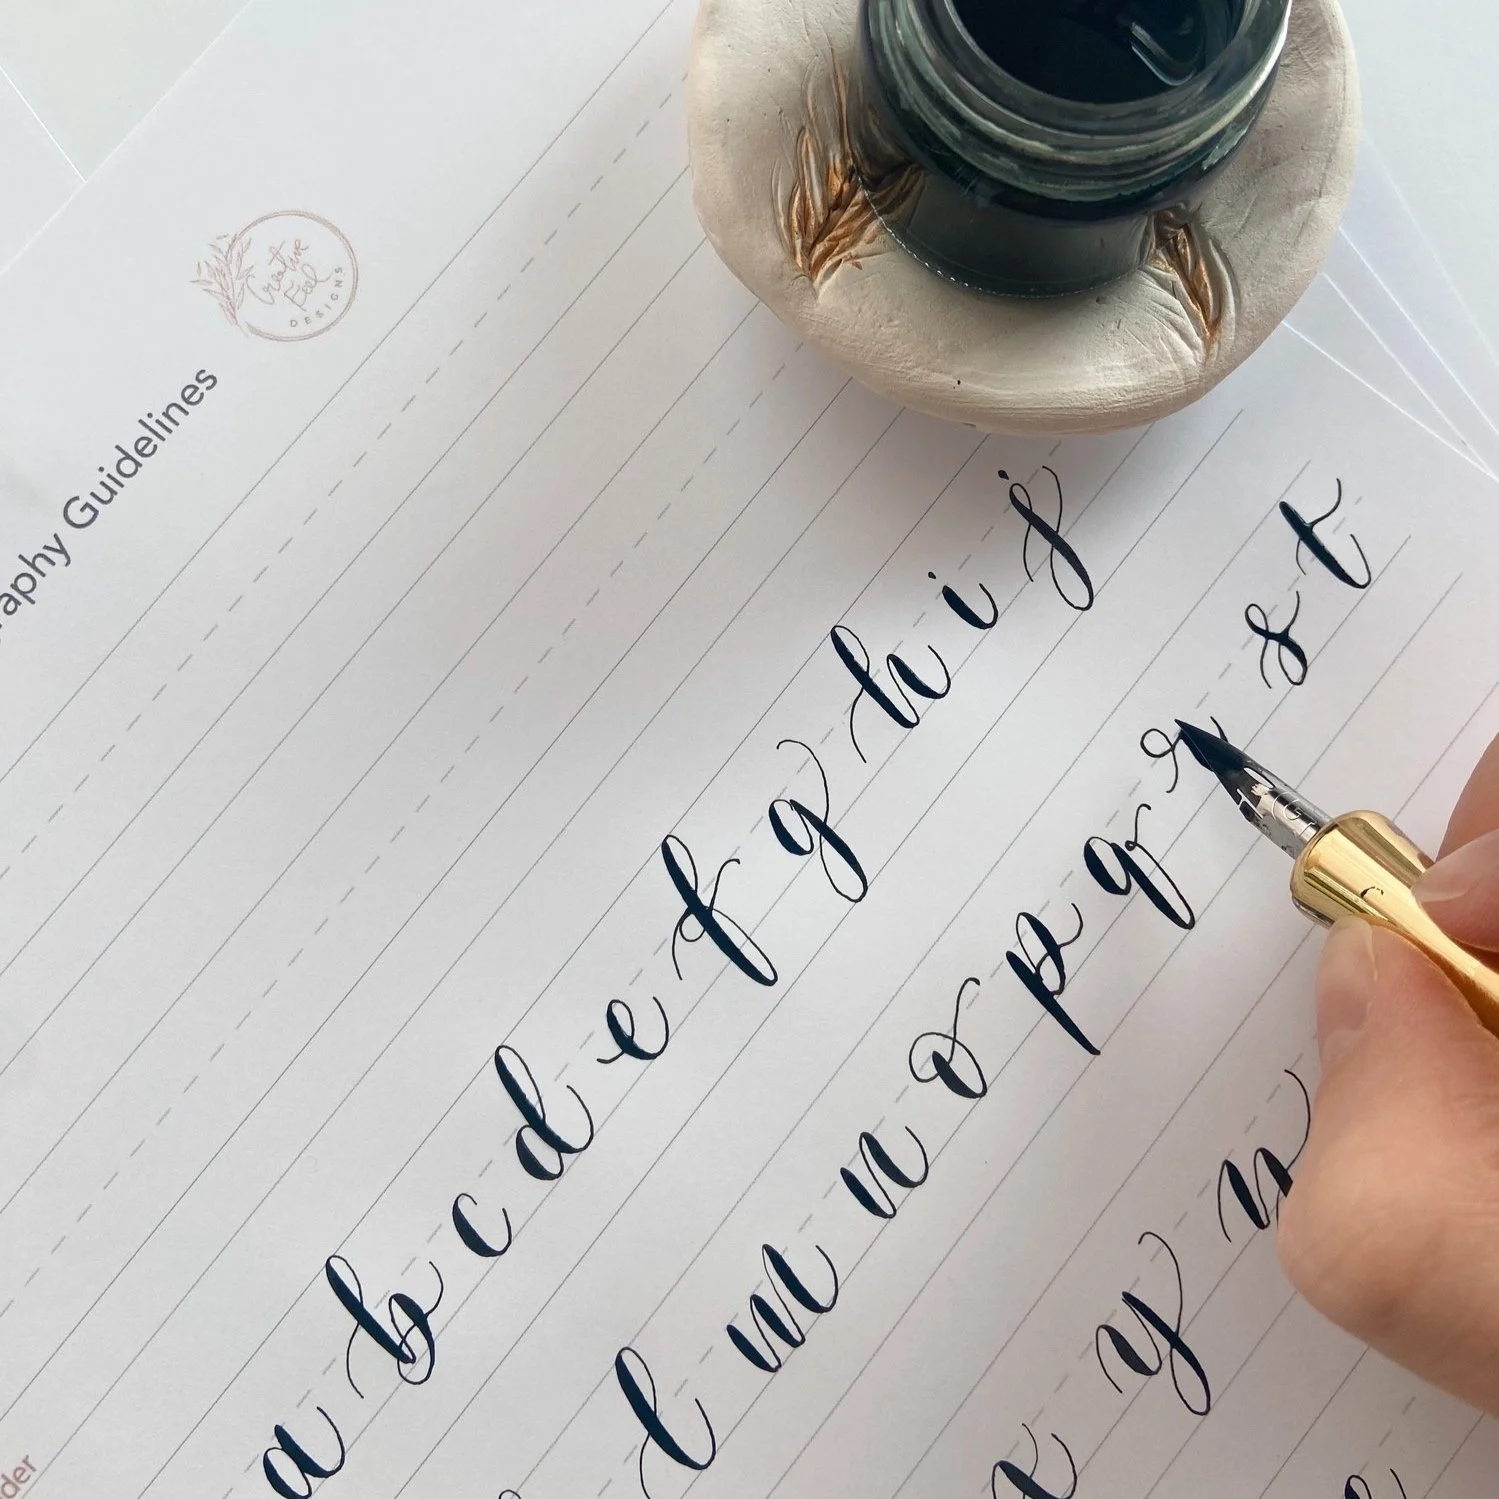 Creative
Feel
DESIGNS
aphy Guidelines
a b c d e f g h i j
l m n o p q r s t
x y z
der